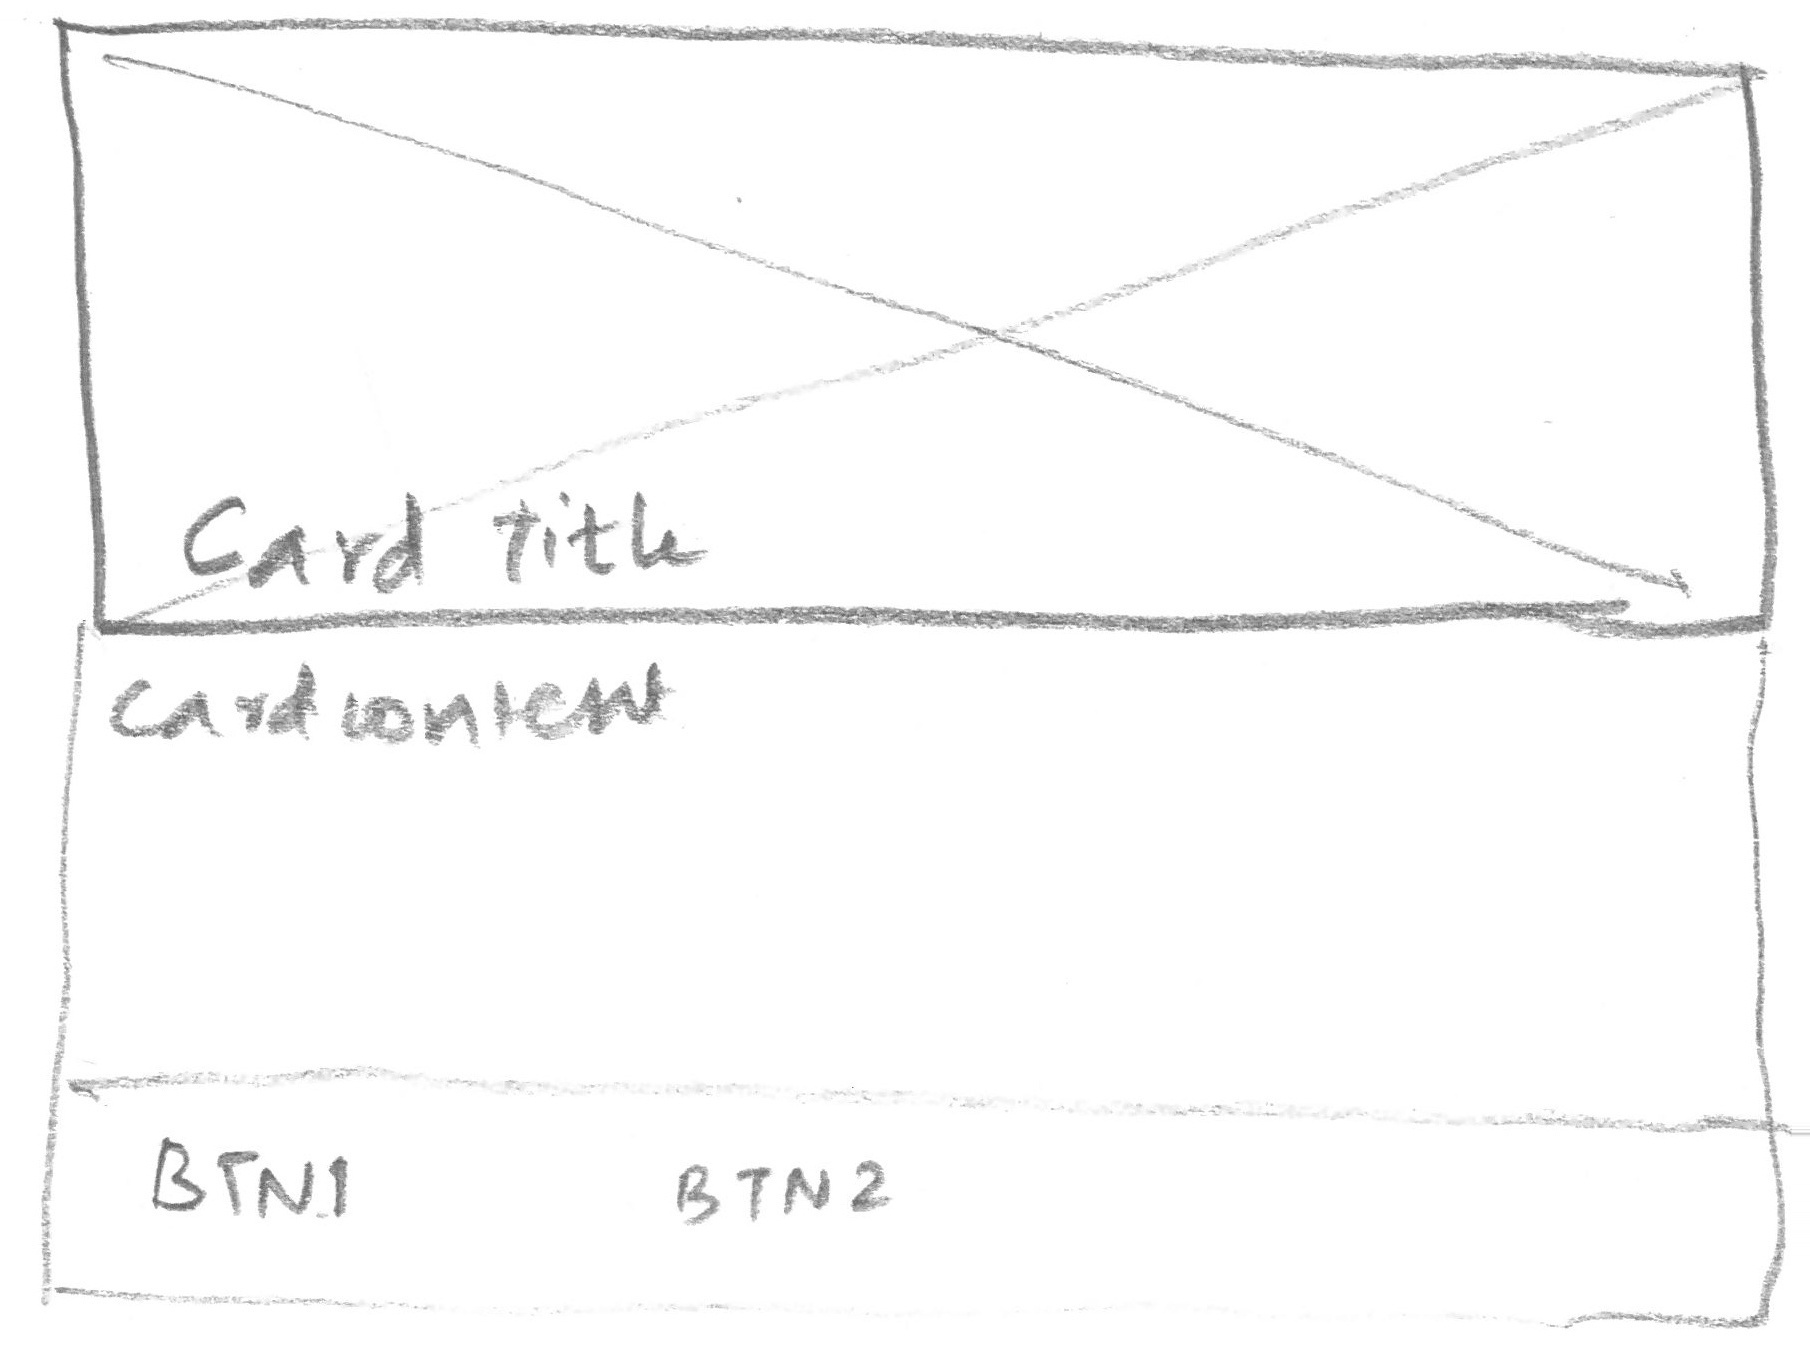 Card Title
Card content
BTN1 BTN2